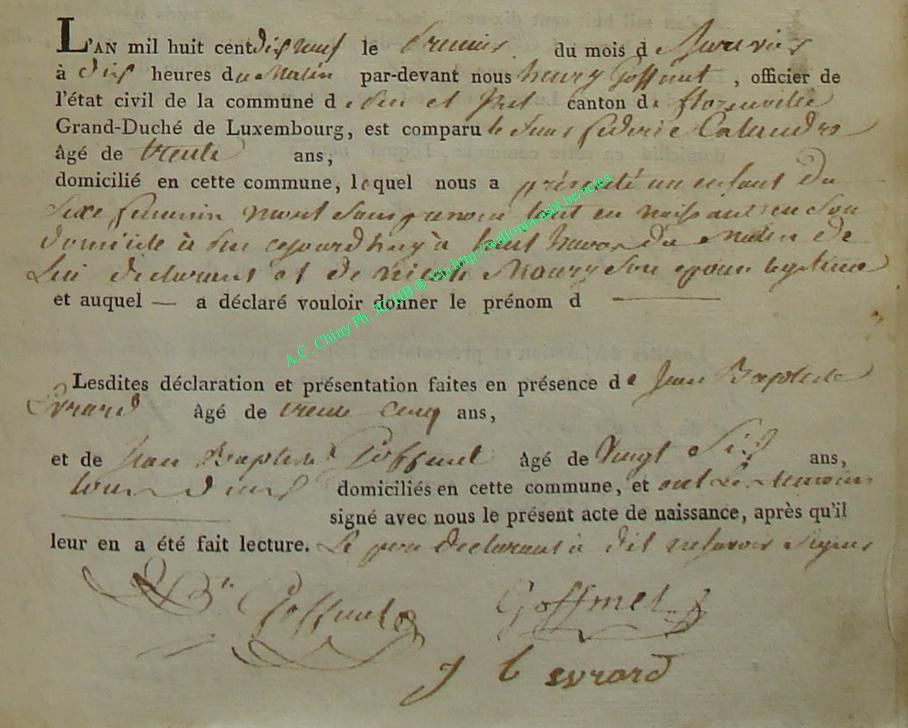 L'AN mil huit cent dix neuf le premier du mois d Janvier
à dix heures du Matin par-devant nous henry Goffinet, officier de
l'état civil de la commune d e Suxy et canton de florenville
Grand-Duché de Luxembourg, est comparu le Sieur Calandre
âgé de trente ans,
domicilié en cette commune, lequel nous a présenté un enfant du
Sexe feminin mort Sans prenom tout en naissant en Son
domicile à cejourdhuy à huit heures du Matin de
Lui declarant et de Nicole Maury Son epouse legitime
et auquel — a déclaré vouloir donner le prénom d —
Lesdites déclaration et présentation faites en présence de Jean Baptiste
Evrard âgé de trente cinq ans,
et de Jean Baptiste Goffinet âgé de Vingt Six ans,
tous deux domiciliés en cette commune, et ont Les temoins
signé avec nous le présent acte de naissance, après qu'il
leur en a été fait lecture. Le pere declarant à dit ne savoir Signer
Bte Goffinet Goffinet
J b evrard
A.C. Chiny Ph. Via http://wallonia-asbl.be/actes